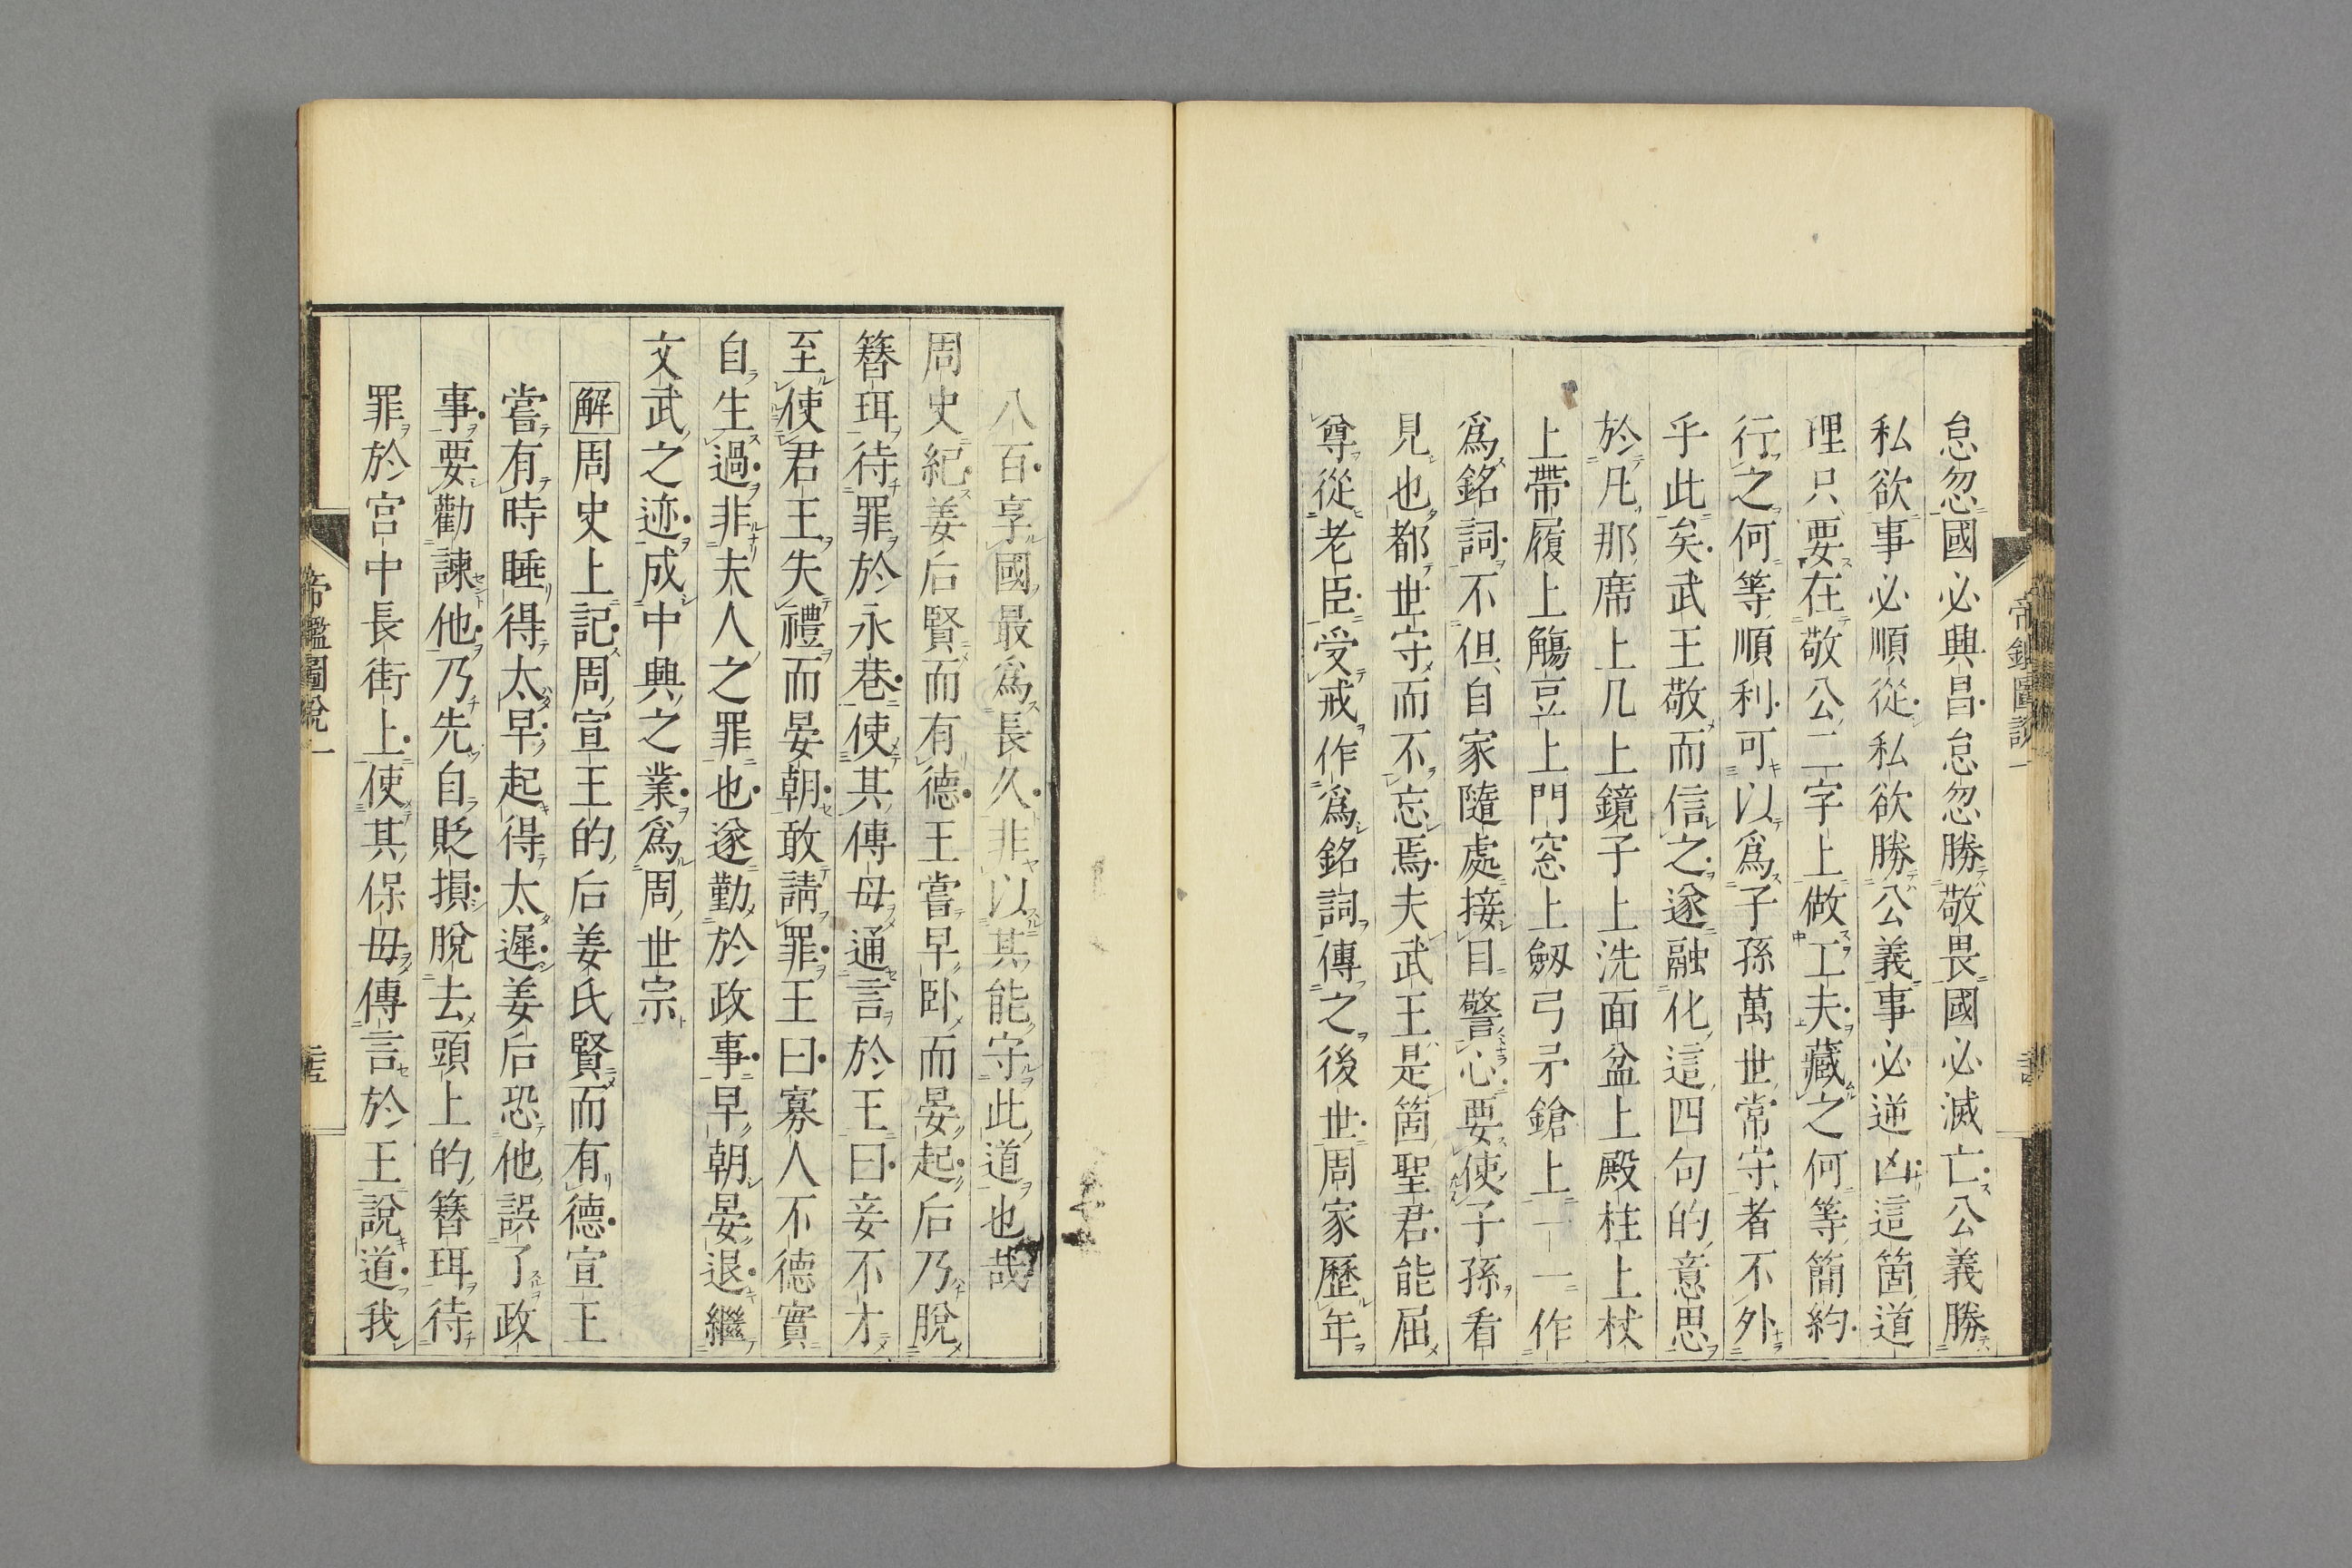 怠忽國必興昌怠忽勝敬畏國必滅亡公義勝
私欲事必順從私欲勝公義事必逆凶這箇道
理只要在敬公二字上做工夫藏之何等簡約
行之何等順利可以爲子孫萬世常守者不外
乎此矣武王敬而信之遂融化這四句的意思
於凡那席上几上鏡子上洗面盆上殿柱上杖
上帶履上觴豆上門窓上劔弓矛鎗上一一作
爲銘詞不但自家隨處接目警心要使子孫看
見也都世守而不忘焉夫武王是箇聖君能屈
尊從老臣受戒作爲銘詞傳之後世周家歷年
八百享國最爲長久非以其能守此道也哉
周史紀姜后賢而有德王嘗早卧而晏起后乃脫
簪珥待罪於永巷使其傳母通言於王曰妾不才
至使君王失禮而晏朝敢請罪王曰寡人不德實
自生過非夫人之罪也遂勤於政事早朝晏退繼
文武之迹成中興之業爲周世宗
解周史上記周宣王的后姜氏賢而有德宣王
嘗有時睡得太早起得太遲姜后恐他誤了政
事要勸諫他乃先自貶損脫去頭上的簪珥待
罪於宮中長街上使其保母傳言於王說道我
帝鑑圖說一